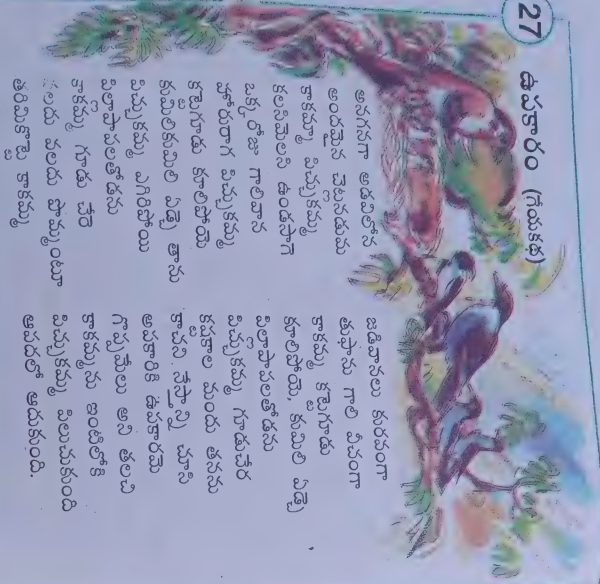 27
ఉపకారం (గేయకథ)
అనగనగా అడవిలోన
అందమైన చెట్లనడుమ
కాకమ్మా పిచ్చుకమ్మ
కలసిమెలసి ఉండసాగె
ఒక్కరోజు గాలివాన
హోరురాగ పిచ్చుకమ్మ
కట్టెగూడు కూలిపోయె
కుమిలికుమిలి ఏడ్చె తాను
పిచ్చుకమ్మ ఎగిరిపోయి
పిల్లాపాపలతోడను
కాకమ్మ గూడు చేరె
వలదు వలదు పొమ్మంటూ
తరిమికొట్టె కాకమ్మ
జడివానలు కురవంగా
తుఫాను గాలి వీచంగా
కాకమ్మ కట్టెగూడు
కూలిపోయె, కుమిలి ఏడ్చె
పిల్లాపాపలతోడను
పిచ్చుకమ్మ గూడుచేర
కష్టకాల మందు తనను
కావని నేస్తాన్ని చూసి
అపకారికి ఉపకారమె
గొప్పమేలు అని తలచి
కాకమ్మను ఇంటిలోకి
పిచ్చుకమ్మ పిలుచుకుంది
ఆపదలో ఆదుకుంది.